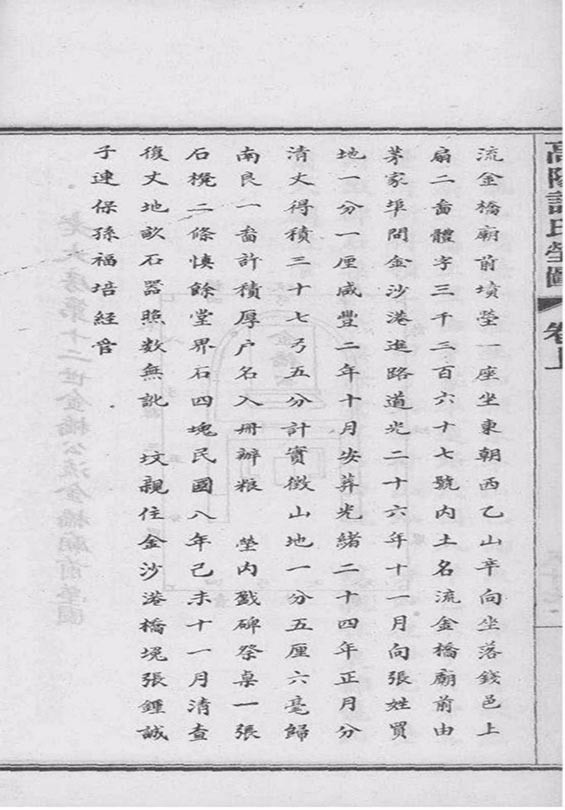 高陽許氏塋圖 卷上
流金橋廟前墳塋一座坐東朝西乙山辛向坐落錢邑上
扇二畨體字三千三百六十七號內土名流金橋廟前由
茅家埠問金沙港進路道光二十六年十一月向張姓買
地一分一厘咸豐二年十月安葬光緒二十四年正月分
清丈得積三十七弓五分計實徵山地一分五厘六毫歸
南良一畨許積厚户名入冊辦粮 塋內戤碑祭桌一張
石櫈二條慎餘堂界石四塊民國八年己未十一月清查
復丈地畝石器照數無訛 坟親住金沙港橋堍張鍾誠
子連保孫福培經管